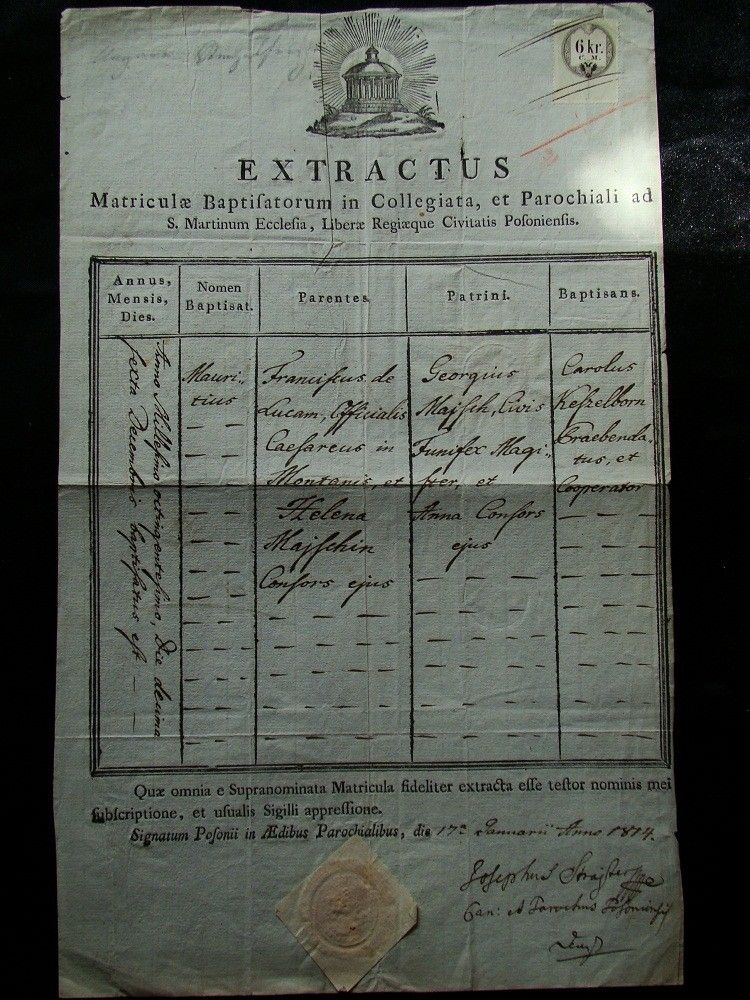 6 kr.
C. M.
EXTRACTUS
Matriculæ Baptiſatorum in Collegiata, et Parochiali ad
S. Martinum Eccleſia, Liberæ Regiæque Civitatis Poſonienſis.
Annus,
Menſis,
Dies.
Nomen
Baptiſat.
Parentes.
Patrini.
Baptiſans.
Anno Milleſimo octingenteſimo, Die decima
ſexta Decembris baptiſatus eſt
Mauri-
tius
Franciſcus de
Lucam, Officialis
Caeſareus in
Montanis, et
Helena
Majſchin
Conſors ejus
Georgius
Majſch, Civis
Funifex Magi-
ſter, et
Anna Conſors
ejus
Carolus
Keſzelborn
Praebenda-
tus, et
Cooperator
Quæ omnia e Supranominata Matricula fideliter extracta eſſe teſtor nominis mei
ſubſcriptione, et uſualis Sigilli appreſſione.
Signatum Poſonii in Ædibus Parochialibus, die 17a Januarii Anno 1814.
Joſephus
Can: et Parochus Poſonienſis